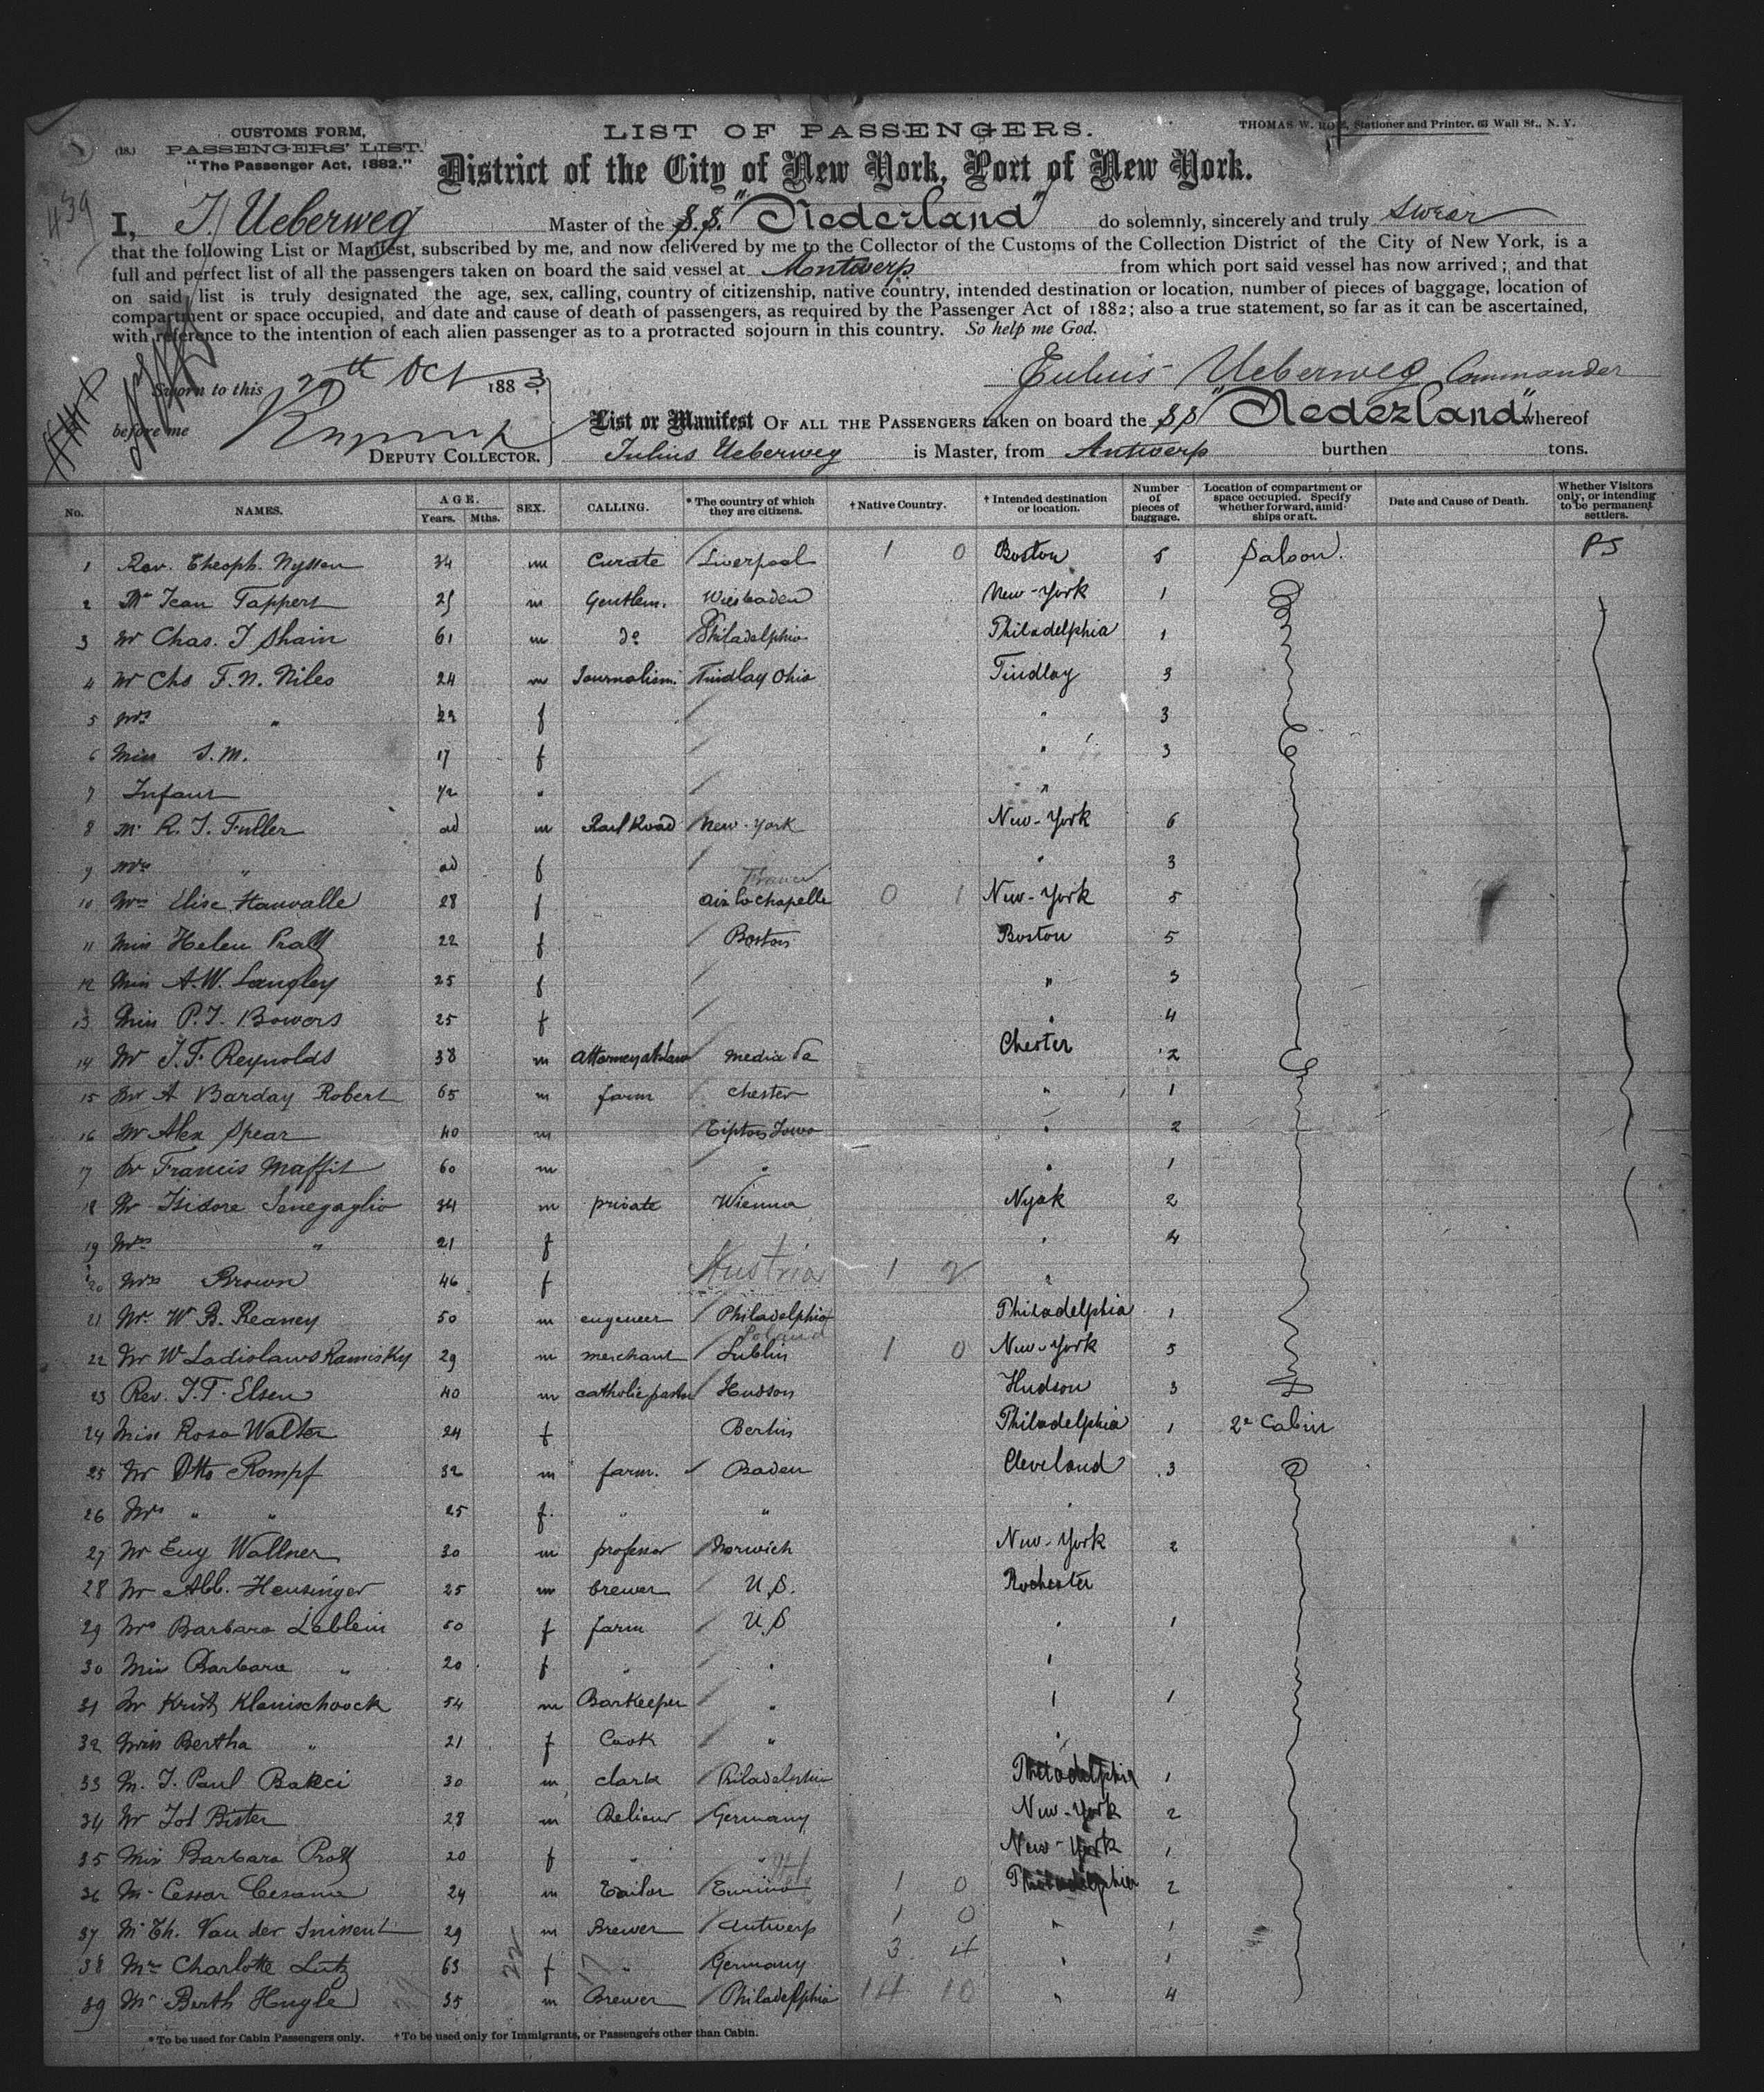 CUSTOMS FORM,
(18.) PASSENGERS' LIST.
"The Passenger Act, 1882."
LIST OF PASSENGERS.
THOMAS W. Stationer and Printer, 63 Wall St., N. Y.
District of the City of New York, Port of New York.
439
I, J. Ueberweg Master of the S.S. "Nederland" do solemnly, sincerely and truly swear
that the following List or Manifest, subscribed by me, and now delivered by me to the Collector of the Customs of the Collection District of the City of New York, is a
full and perfect list of all the passengers taken on board the said vessel at Antwerp from which port said vessel has now arrived; and that
on said list is truly designated the age, sex, calling, country of citizenship, native country, intended destination or location, number of pieces of baggage, location of
compartment or space occupied, and date and cause of death of passengers, as required by the Passenger Act of 1882; also a true statement, so far as it can be ascertained,
with reference to the intention of each alien passenger as to a protracted sojourn in this country. So help me God.
Sworn to this 29th Oct 1883
Julius Ueberweg Commander
before me
DEPUTY COLLECTOR.
List or Manifest OF ALL THE PASSENGERS taken on board the SS "Nederland" whereof
Julius Ueberweg is Master, from Antwerp burthen tons.
No. NAMES. AGE. Years. Mths. SEX. CALLING. * The country of which they are citizens. † Native Country. † Intended destination or location. Number of pieces of baggage. Location of compartment or space occupied. Specify whether forward, amidships or aft. Date and Cause of Death. Whether Visitors only, or intending to be permanent settlers.
1 Rev. Theoph. Nyssen 34 m Curate Liverpool 1 0 Boston 5 Saloon. PS
2 Mr Jean Tappert 25 m Gentlem. Wiesbaden New-York 1
3 Mr Chas. T Shain 61 m do Philadelphia Philadelphia 1
4 Mr Chs F. N. Niles 24 m Journalism. Findlay Ohio Findlay 3
5 Mrs " 23 f " 3
6 Miss S. M. 17 f " 3
7 Infant 1/2 " "
8 Mr R. J. Fuller ad m Rail Road New-York New-York 6
9 Mrs " ad f " 3
France
10 Mrs Elise Hauvalle 28 f Aix la chapelle 0 1 New-York 5
11 Miss Helen Pratt 22 f Boston Boston 5
12 Miss A. W. Langley 25 f " 3
13 Miss P. J. Bowers 25 f " 4
14 Mr J. F. Reynolds 38 m Attorney at law Media Pa Chester 2
15 Mr A Barday Robert 65 m farm Chester " 1
16 Mr Alex Spear 40 m Tipton Iowa " 2
17 Mr Francis Maffit 60 m " " 1
18 Mr Isidore Senegaglio 34 m private Wienna Nyak 2
19 Mrs " 21 f " 4
20 Mrs Brown 46 f Austria 1 2 "
21 Mr W. B. Reaney 50 m engeneer Philadelphia Philadelphia 1
Poland
22 Mr W Ladislaws Ramisky 29 m merchant Lublin 1 0 New-York 5
23 Rev. J. T. Elsen 40 m catholic pastor Hudson Hudson 3
24 Miss Rosa Walter 24 f Berlin Philadelphia 1 2e Cabin
25 Mr Otto Rompf 32 m farm. Baden Cleveland 3
26 Mrs " " 25 f. " " "
27 Mr Eug Wallner 30 m professor Norwich New-York 2
28 Mr Alb. Heusinger 25 m brewer U.S. Rochester
29 Mrs Barbara Leblein 50 f farm U.S " 1
30 Miss Barbara " 20 f " " "
31 Mr Krist Klanischoock 54 m Barkeeper " " 1
32 Miss Bertha " 21 f Cook " "
33 M. J. Paul Bakci 30 m clark Philadelphia Philadelphia 1
34 Mr Jos Bister 28 m Relieur Germany New-York 2
35 Miss Barbara Protz 20 f " " New-York 1
36 Mr Cessar Cesama 24 m Tailor Turino 1 0 Philadelphia 2
37 Mr Th. Van der Smissent 29 m Brewer Antwerp 1 0 " 1
38 Mrs Charlotte Lutz 63 f " Germany 3 4 " 1
39 Mr Berth Hugle 35 m Brewer Philadelphia 14 10 " 4
22 17
* To be used for Cabin Passengers only. † To be used only for Immigrants, or Passengers other than Cabin.